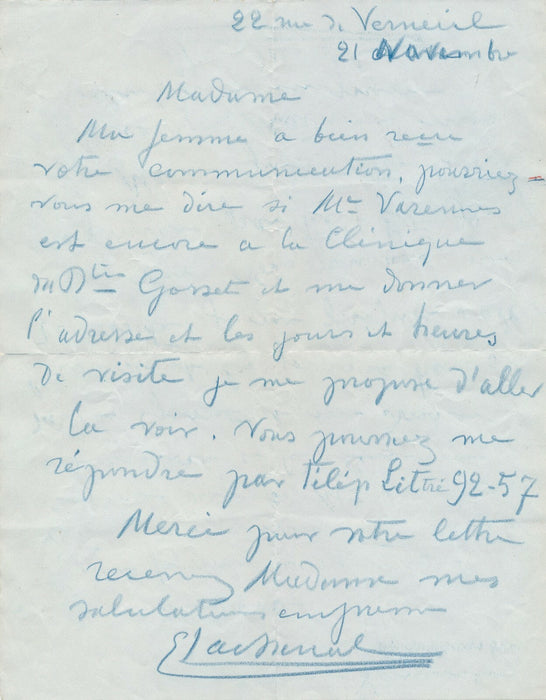 22 rue de Verneuil
21 Novembre
Madame
Ma femme a bien reçu
votre communication, pourriez-
vous me dire si Mr Varennes
est encore a la Clinique
du Dr Gosset et me donner
l'adresse et les jours et heures
de visite je me propose d'aller
la voir. Vous pourrez me
répondre par Télép Littré 92-57
Merci pour votre lettre
recevez Madame mes
salutations empressées